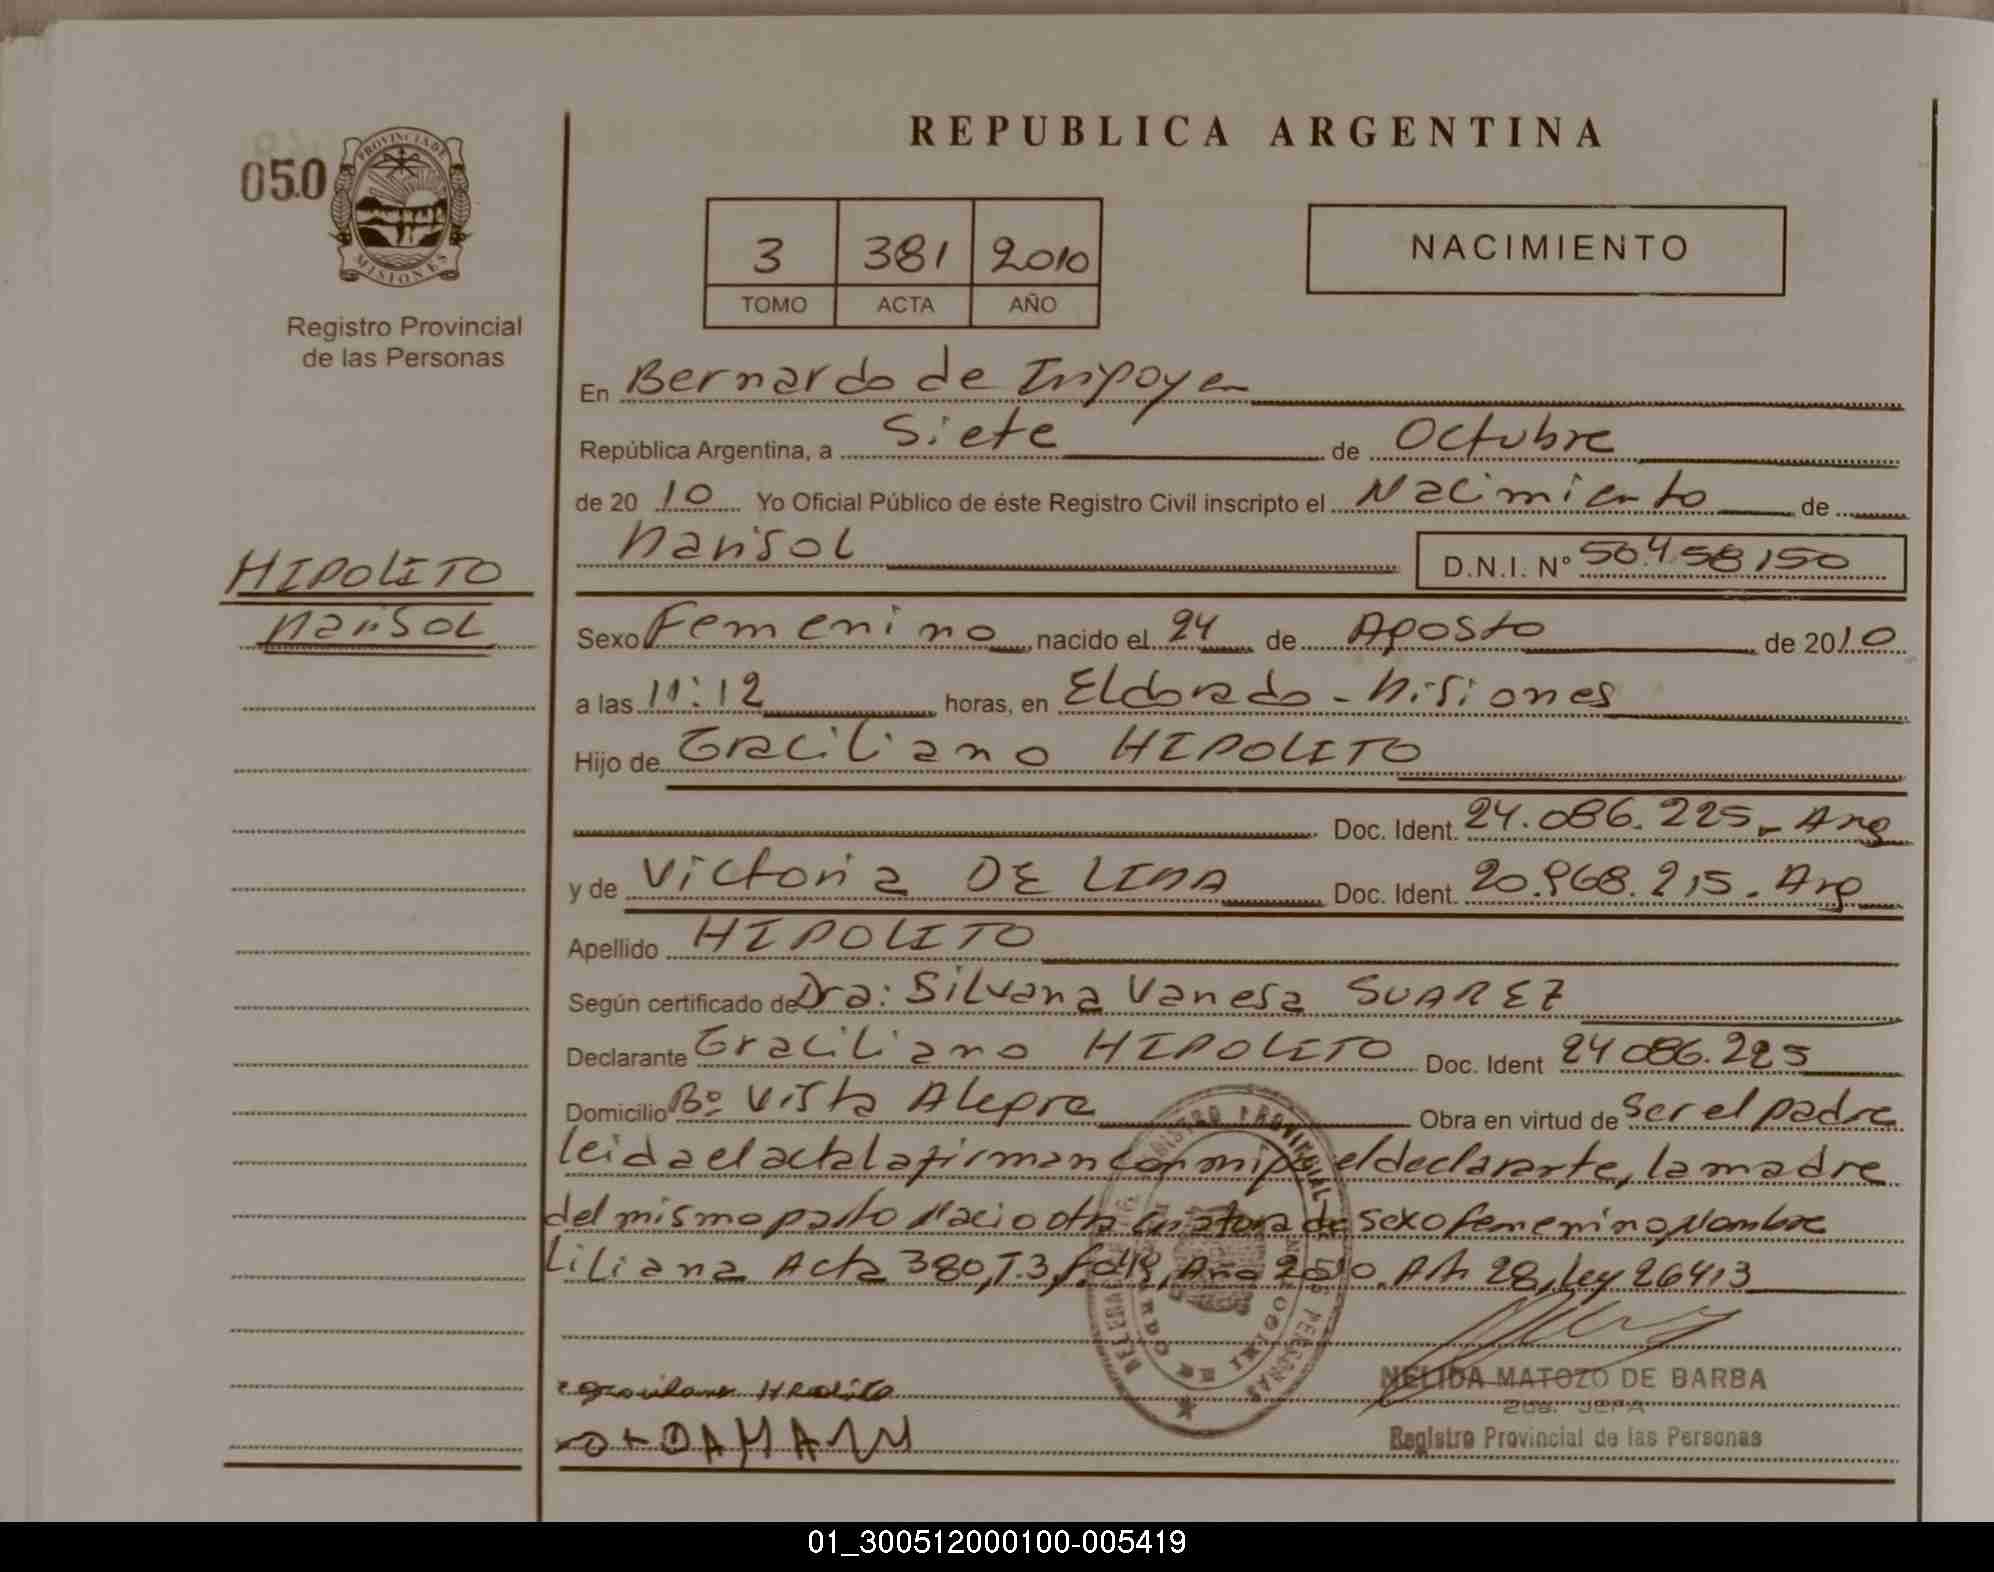 REPUBLICA ARGENTINA
050
PROVINCIA DE
MISIONES
Registro Provincial
de las Personas
3 381 2010
TOMO ACTA AÑO
NACIMIENTO
En Bernardo de Irigoyen
República Argentina, a Siete de Octubre
de 2010 Yo Oficial Público de éste Registro Civil inscripto el Nacimiento de
Marisol D.N.I. Nº 50.458.150
HIPOLITO
Marisol
Sexo Femenino nacido el 24 de Agosto de 2010
a las 11:12 horas, en Eldorado - Misiones
Hijo de Graciliano HIPOLITO
Doc. Ident. 24.086.225 - Arg
y de Victoria DE LIMA Doc. Ident. 20.968.215. Arg
Apellido HIPOLITO
Según certificado de Dra: Silvana Vanesa SUAREZ
Declarante Graciliano HIPOLITO Doc. Ident 24086.225
Domicilio Bº Vista Alegre Obra en virtud de Ser el padre
leida el acta la firman conmigo el declarante, la madre
del mismo parto Nacio otra criatura de sexo femenino, Nombre
Liliana Acta 380, T.3, f.049, Año 2010. Art 28, Ley 26413
Graciliano Hipolito
NELIDA MATOZO DE BARBA
2da. JEFA
Registro Provincial de las Personas
01_300512000100-005419